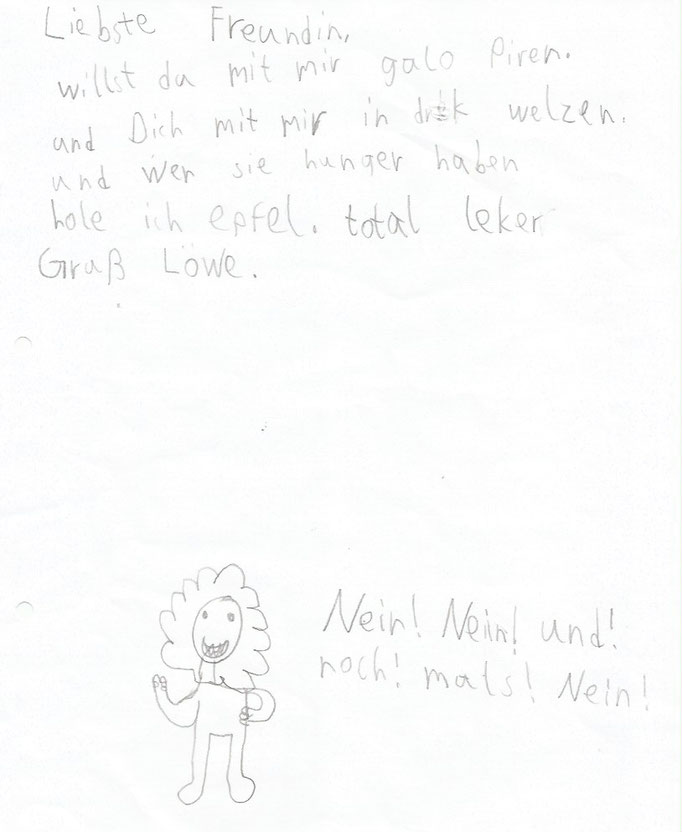 Liebste Freundin,
willst du mit mir galo Piren.
und Dich mit mir in drek welzen.
und wer sie hunger haben
hole ich epfel. total leker
Gruß Löwe.
Nein! Nein! und!
noch! mals! Nein!